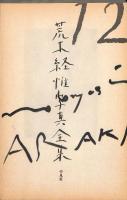 12
荒木経惟写真全集
ARAKI